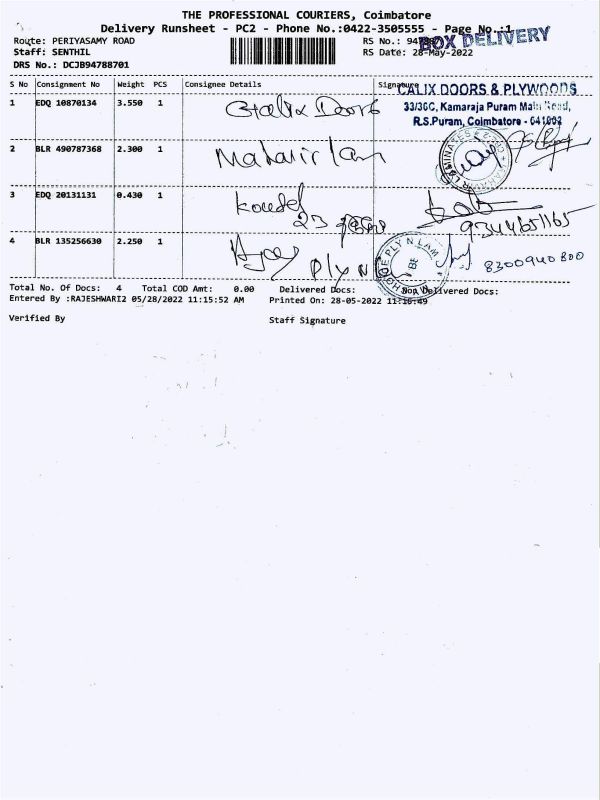 THE PROFESSIONAL COURIERS, Coimbatore
Delivery Runsheet - PC2 - Phone No.:0422-3505555 - Page No.:1
BOX DELIVERY
Route: PERIYASAMY ROAD
Staff: SENTHIL
DRS No.: DCJB94788701
RS Date: 28-May-2022
S No Consignment No Weight PCS Consignee Details Signature
CALIX DOORS & PLYWOODS
33/36C, Kamaraja Puram Main Road,
R.S.Puram, Coimbatore - 641002
1 EDQ 10870134 3.550 1 Calix Doors
2 BLR 490787368 2.300 1 Mahavir Lam
3 EDQ 20131131 0.430 1
23
9344651165
4 BLR 135256630 2.250 1 Ajay Ply N
PLY N LAM
8300940800
Total No. Of Docs: 4 Total COD Amt: 0.00 Delivered Docs: Non Delivered Docs:
Entered By :RAJESHWARI2 05/28/2022 11:15:52 AM Printed On: 28-05-2022 11:16:49
Verified By Staff Signature